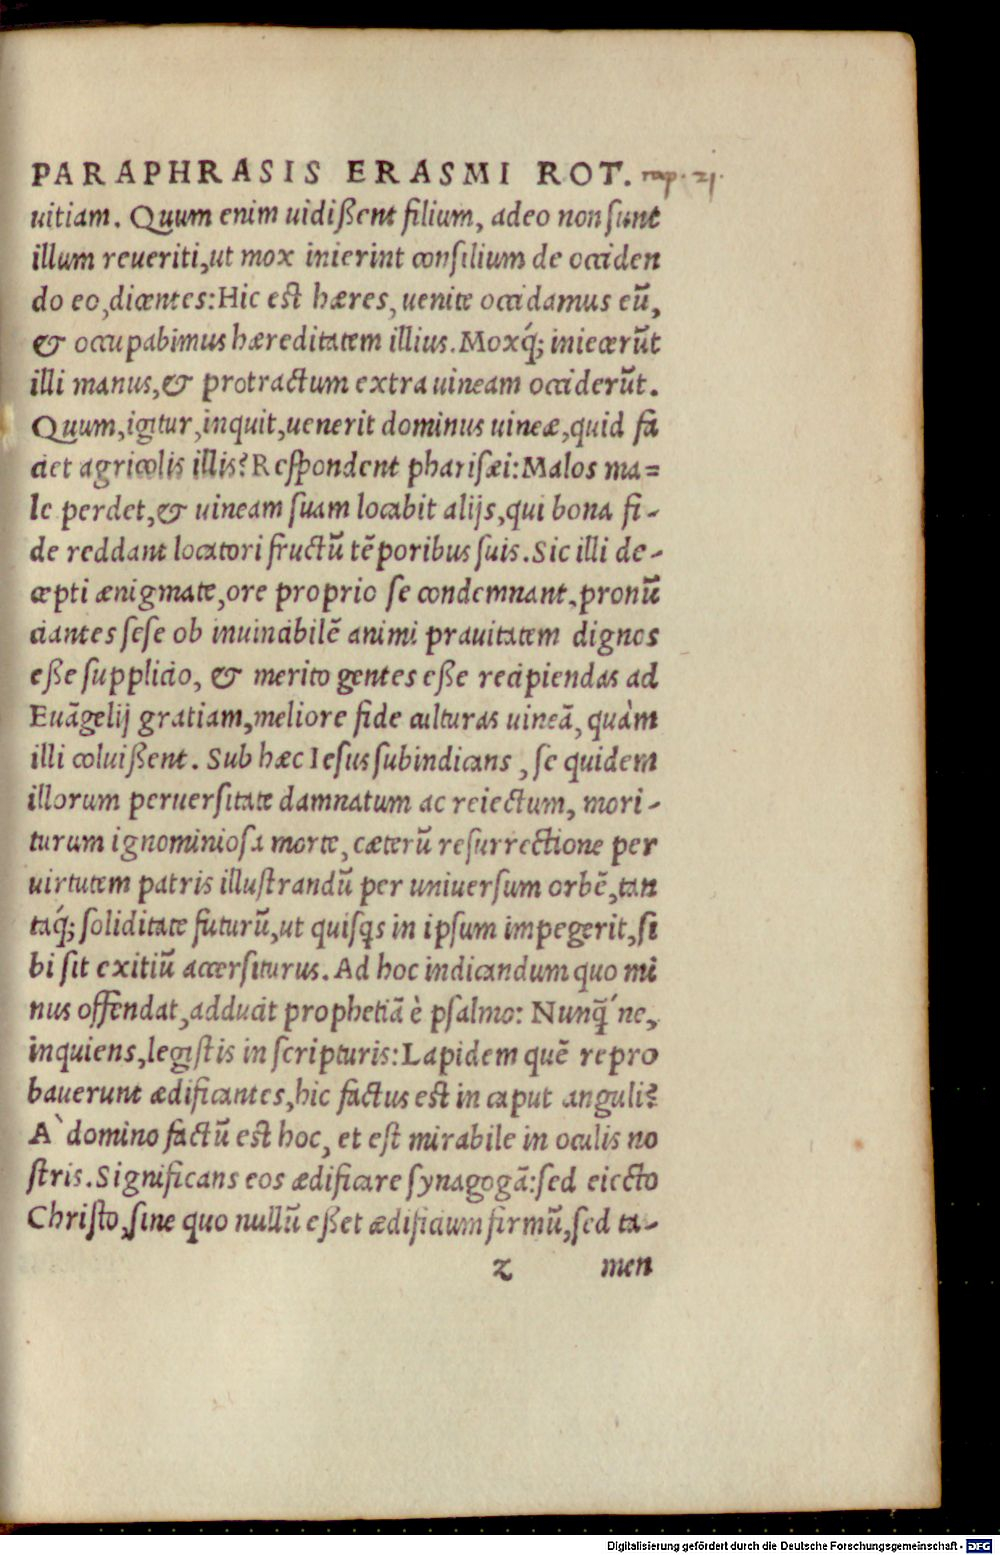 PARAPHRASIS ERASMI ROT. cap. 21.
uitiam. Quum enim uidißent filium, adeo non sunt
illum reueriti, ut mox inierint consilium de occiden
do eo, dicentes: Hic est hæres, uenite occidamus eũ,
& occupabimus hæreditatem illius. Moxq́; iniecerũt
illi manus, & protractum extra uineam occiderũt.
Quum, igitur, inquit, uenerit dominus uineæ, quid fa
ciet agricolis illis? Respondent pharisæi: Malos ma=
le perdet, & uineam suam locabit alijs, qui bona fi-
de reddant locatori fructũ tẽporibus suis. Sic illi de-
cepti ænigmate, ore proprio se condemnant, pronũ
ciantes sese ob inuincibilẽ animi prauitatem dignos
eße supplicio, & merito gentes eße recipiendas ad
Euãgelij gratiam, meliore fide culturas uineã, quàm
illi coluißent. Sub hæc Iesus subindicans, se quidem
illorum peruersitate damnatum ac reiectum, mori-
turum ignominiosa morte, cæterũ resurrectione per
uirtutem patris illustrandũ per uniuersum orbẽ, tan
taq́; soliditate futurũ, ut quisqs in ipsum impegerit, si
bi sit exitiũ accersiturus. Ad hoc indicandum quo mi
nus offendat, adducit prophetiã è psalmo: Nunq̃ ne,
inquiens, legistis in scripturis: Lapidem quẽ repro
bauerunt ædificantes, hic factus est in caput anguli?
A` domino factũ est hoc, et est mirabile in oculis no
stris. Significans eos ædificare synagogã: sed eiecto
Christo, sine quo nullũ eßet ædificium firmũ, sed ta-
z men
Digitalisierung gefördert durch die Deutsche Forschungsgemeinschaft - DFG